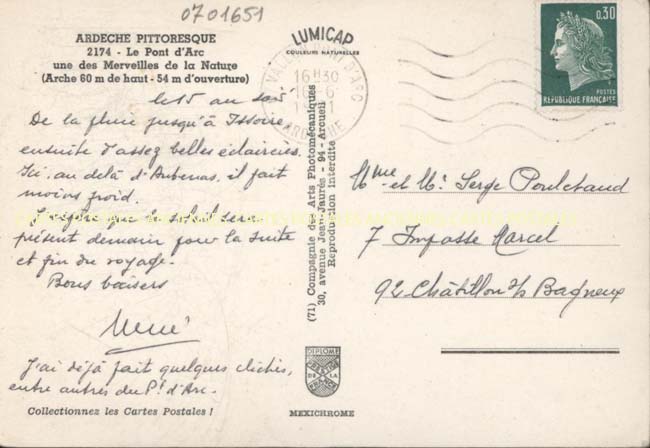 0701651
ARDECHE PITTORESQUE
2174 - Le Pont d'Arc
une des Merveilles de la Nature
(Arche 60 m de haut - 54 m d'ouverture)
LUMICAP
COULEURS NATURELLES
0,30
POSTES
REPUBLIQUE FRANÇAISE
16H30
ARDECHE
le 15 au soir
De la pluie jusqu'à Issoire,
ensuite d'assez belles éclaircies.
Ici, au delà d'Aubenas, il fait
moins froid.
présent demain pour la suite
et fin du voyage.
Bons baisers
René
J'ai déjà fait quelques clichés,
entre autres du Pt d'Arc.
Collectionnez les Cartes Postales !
(71) Compagnie des Arts Photomécaniques
30, avenue Jean-Jaurès - 94 - Arcueil
Reproduction interdite
DIPLOME
MEXICHROME
Mme et Mr Serge
7 Impasse Marcel
92 Châtillon s/s Bagneux